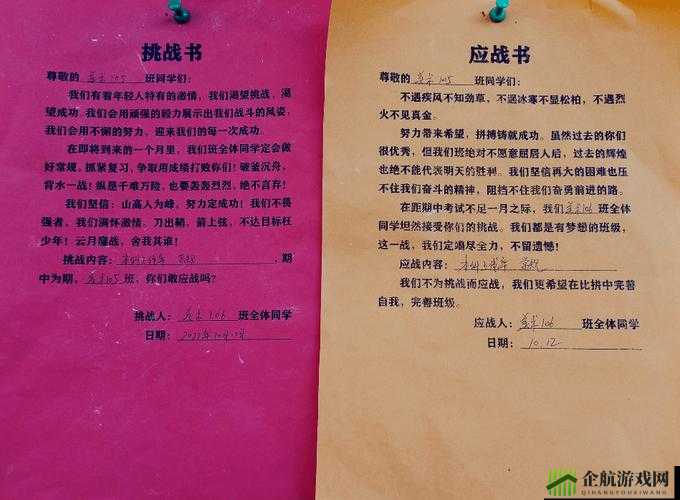 挑战书
尊敬的 美术105 班同学们：
我们有着年轻人特有的激情，我们渴望挑战，渴
望成功。我们会用顽强的毅力展示出我们战斗的风姿，
我们会用不懈的努力，迎来我们的每一次成功。
在即将到来的一个月里，我们班全体同学定会做
好常规，抓紧复习，争取用成绩打败你们！破釜沉舟，
背水一战！纵是千难万险，也要轰轰烈烈，绝不言弃！
我们坚信：山高人为峰，努力定成功！我们不畏
强者，我们满怀激情。刀出鞘，箭上弦，不达目标枉
少年！云月鏖战，舍我其谁！
挑战内容： ，期
中为期，美术105班，你们敢应战吗？
挑战人：美术106 班全体同学
日期：
应战书
尊敬的 美术105 班同学们：
不遇疾风不知劲草，不遇冰寒不显松柏，不遇烈
火不见真金。
努力带来希望，拼搏铸就成功。虽然过去的你们
很优秀，但我们班绝对不愿意屈居人后，过去的辉煌
也绝不能代表明天的胜利。我们坚信再大的困难也压
不住我们奋斗的精神，阻挡不住我们奋勇前进的路。
在距期中考试不足一月之际，我们美术106班全体
同学坦然接受你们的挑战。我们都是有梦想的班级，
这一战，我们定竭尽全力，不留遗憾！
应战内容：
我们不为挑战而应战，我们更希望在比拼中完善
自我，完善班级。
应战人：美术106 班全体同学
日期：10.12
企航游戏网
QIHANGYOUXIWANG